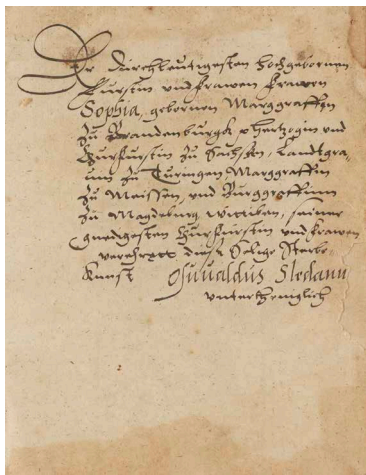 Der Durchleutigesten hochgebornen
Furstin und frawen frawen
Sophia, gebornen Marggraffin
zu Brandenburgk, hertzogin und
Churfurstin zu Sachssen, Landtgra-
uin zu Turingen, Marggraffin
zu Meissen, und Burggraffinn
zu Magdeburg, wittiben, seiner
gnedigesten Churfurstin und frawen
verehrett diese Selige Sterbe-
kunst Osuualdus Sledanu
untertheniglich